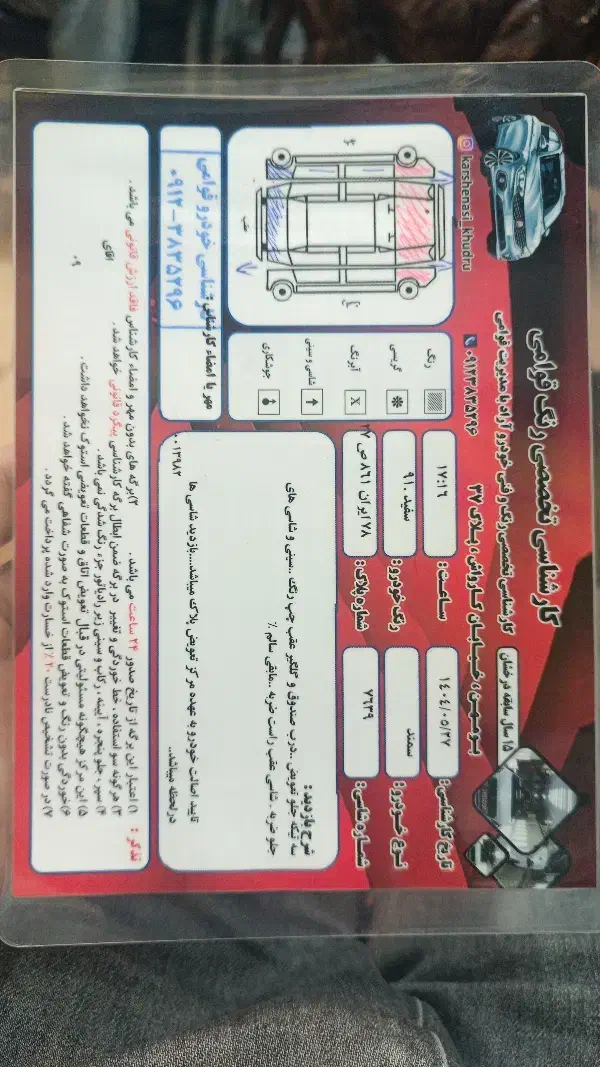 کارشناسی تخصصی رنگ قوامی
کارشناسی تخصصی رنگ و فنی خودرو آزاد با مدیریت قوامی
۰۹۱۲۳۸۳۵۲۹۶
بومهن، خیابان کارواش، پلاک ۲۷
۱۵ سال سابقه درخشان
karshenasi_khudru
تاریخ کارشناسی: ۱۴۰۴/۰۵/۲۷
ساعت: ۱۷:۱۶
نوع خودرو: سمند
رنگ خودرو: سفید .۹۱
شماره شاسی: ۷۶۳۹
شماره پلاک: ۷۸ ایران ۸۶۱ص۲۷
رنگ
گریسی
آبرنگ
X
شاسی و سینی
جوشکاری
عقب
شرح بازدید:
سه تیکه جلو تعویض ..درب صندوق و گلگیر عقب چپ رنگ ..سینی و شاسی های
جلو ضربه . شاسی عقب راست ضربه ..مابقی سالم ٪
تایید اصالت خودرو به عهده مرکز تعویض پلاک میباشد....بازدید شاسی ها
درلحظه میباشد..
۰۰۱۳۹۸۲
مهر یا امضاء کارشناس
کارشناسی خودرو قوامی
۰۹۱۲-۳۸۳۵۲۹۶
تذکر :
۱) اعتبار این برگه از تاریخ صدور ۲۴ ساعت می باشد.
۲)برگه های بدون مهر و امضاء کارشناس فاقد ارزش قانونی می باشد.
۳) هرگونه سو استفاده . خط خوردگی و تغییر در برگه ضمن ابطال برگه کارشناسی پیگرد قانونی خواهد شد.
۴) سپر . جلو پنجره . آیینه . رکاب و سینی زیر رادیاتور جزء رنگ شدگی نمی باشد.
۵) این مرکز هیچگونه مسئولیتی در قبال تعویض اتاق و قطعات تعویضی استوک نخواهد داشت.
۶)خوردگی بدون رنگ و تعویض قطعات استوک به صورت شفاهی گفته خواهد شد.
۷) در صورت تشخیص نادرست ۲۰٪ از خسارت وارد شده پرداخت می گردد.
اقای
۰۹